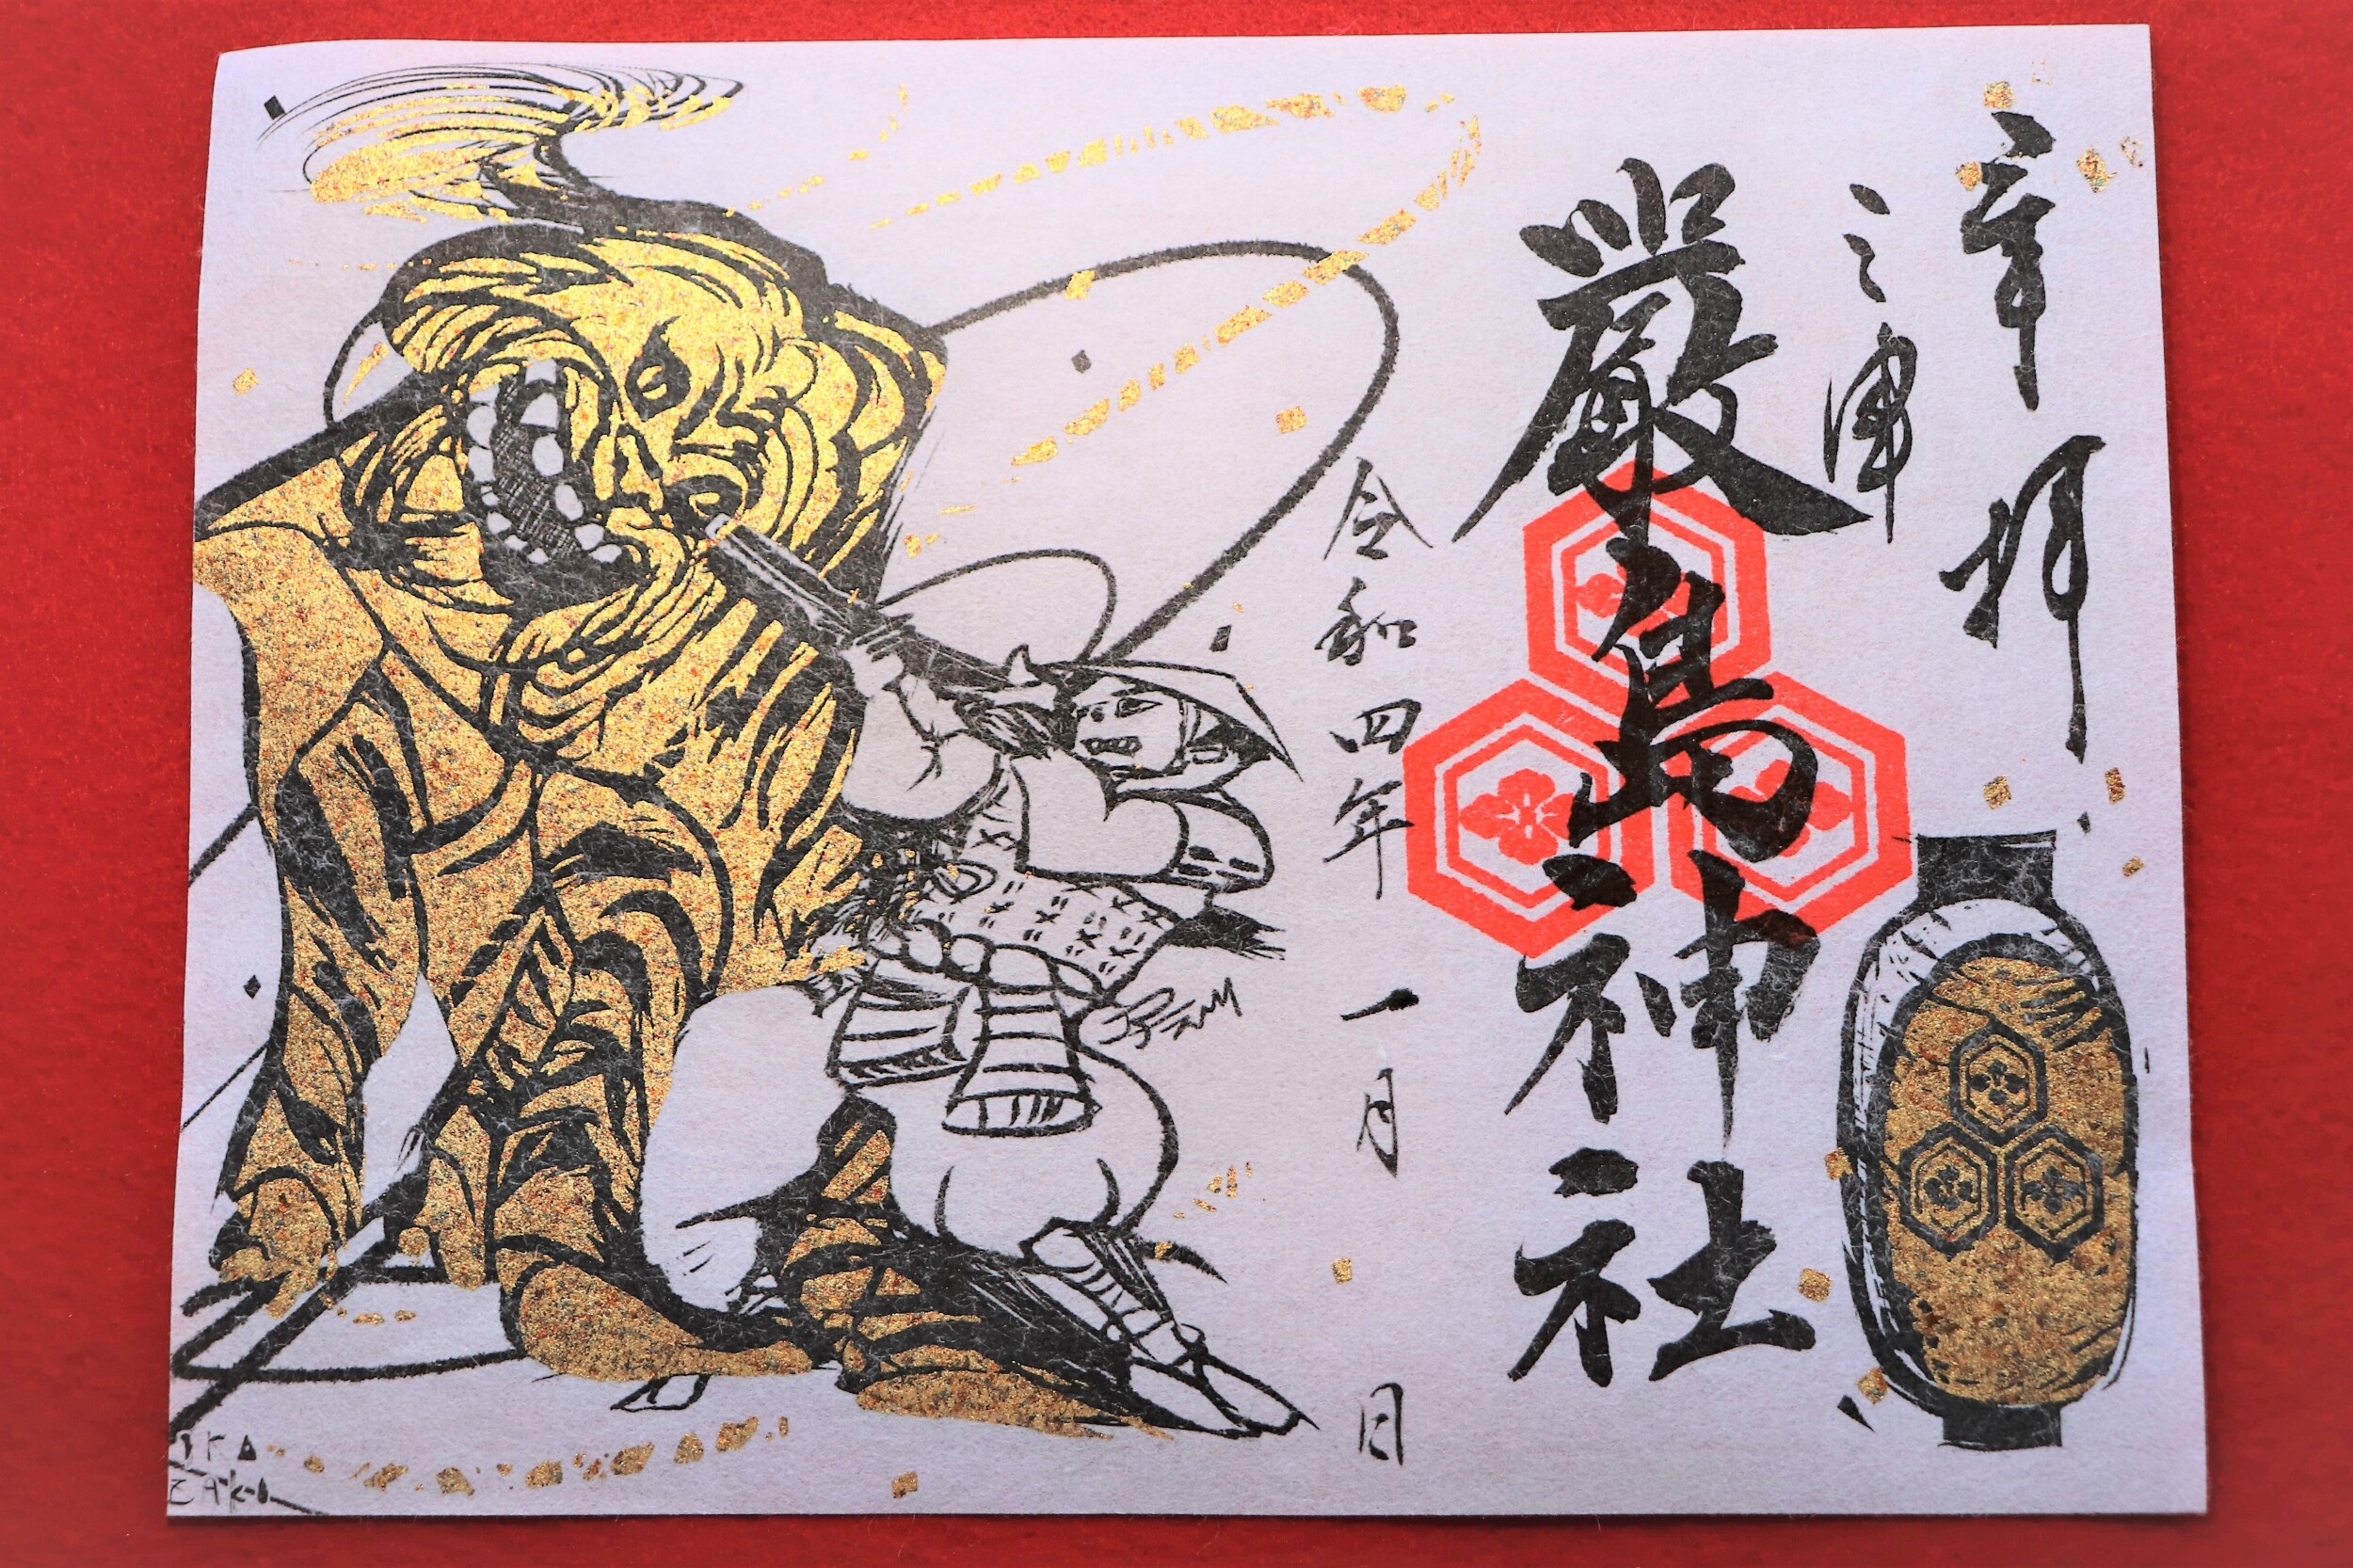 奉拝
三津
嚴島神社
令和四年 一月 日